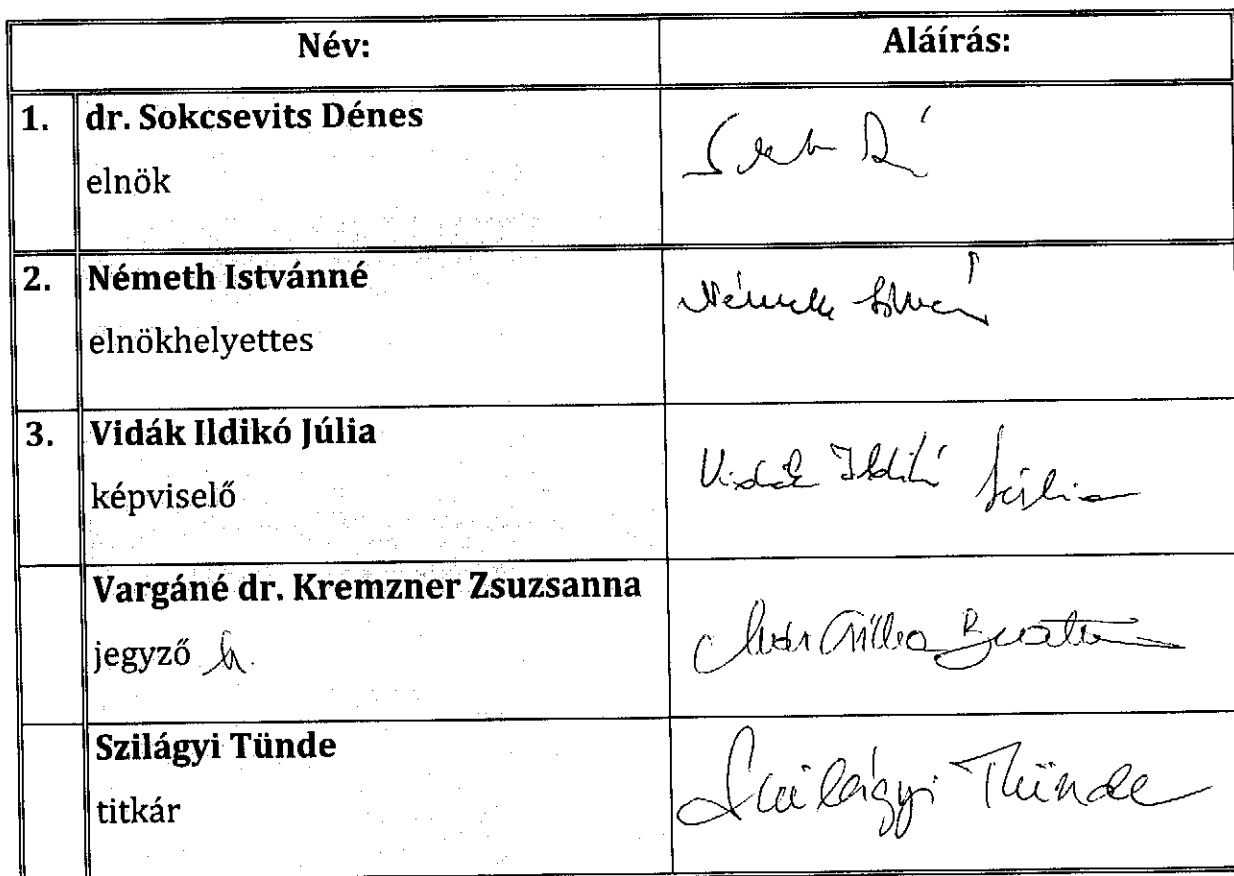 Név: Aláírás:
1. dr. Sokcsevits Dénes
elnök
2. Németh Istvánné
elnökhelyettes
Németh
3. Vidák Ildikó Júlia
képviselő
Vidák Ildikó Júlia
Vargáné dr. Kremzner Zsuzsanna
jegyző h.
Szilágyi Tünde
titkár
Szilágyi Tünde